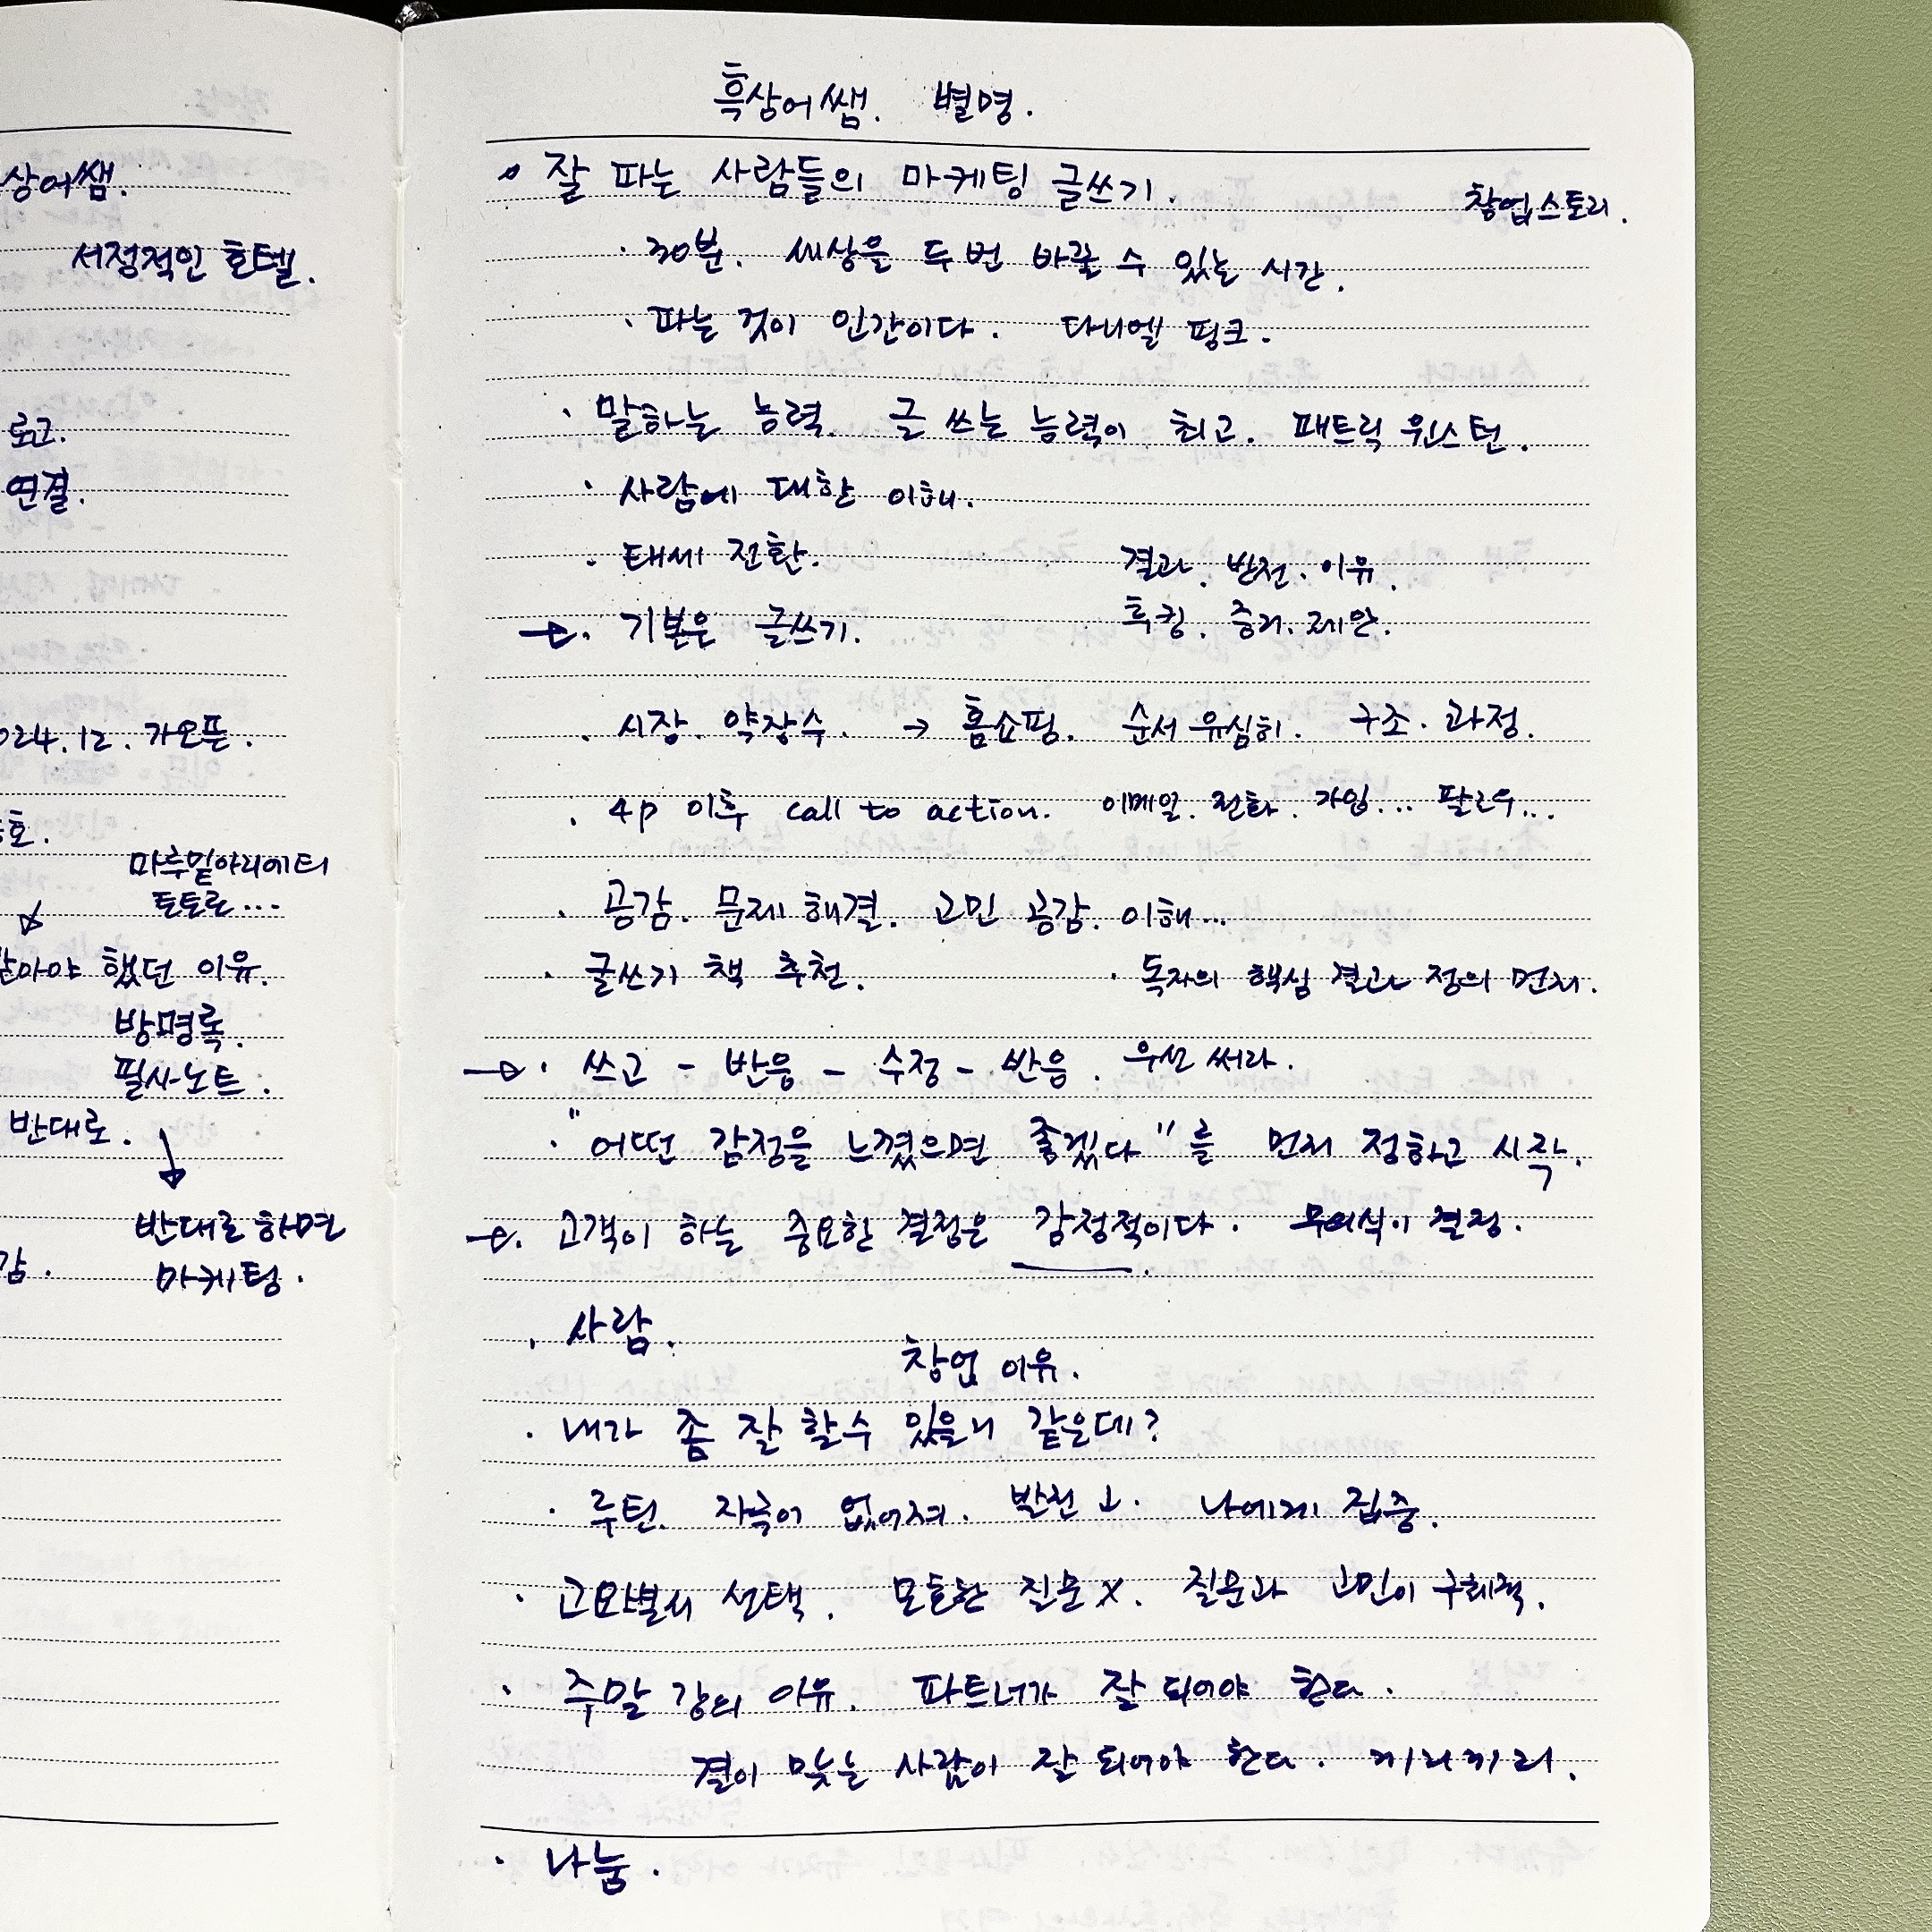 상어쌤.
서정적인 호텔.
로그.
연결.
024.12. 가오픈.
호.
마루밑아리에티
토토로...
받아야 했던 이유.
방명록.
필사노트.
반대로.
반대로 하면
감.
마케팅.
흑상어쌤. 별명.
잘 파는 사람들의 마케팅 글쓰기.
창업스토리.
· 30분. 세상을 두 번 바꿀 수 있는 시간.
· 파는 것이 인간이다. 다니엘 핑크.
· 말하는 능력. 글 쓰는 능력이 최고. 패트릭 윈스턴.
· 사람에 대한 이해.
· 태세 전환.
결과. 반전. 이유.
→. 기본은 글쓰기.
후킹. 증거. 제안.
· 시장. 약장수. → 홈쇼핑. 순서 유심히. 구조. 과정.
· 4p 이후 call to action. 이메일. 전화. 가입... 팔로우...
· 공감. 문제 해결. 고민 공감. 이해...
· 글쓰기 책 추천.
· 독자의 핵심 결과 정의 먼저.
→· 쓰고 - 반응 - 수정 - 반응. 우선 써라.
· "어떤 감정을 느꼈으면 좋겠다"를 먼저 정하고 시작.
→. 고객이 하는 중요한 결정은 감정적이다. 무의식이 결정.
· 사람.
창업 이유.
· 내가 좀 잘 할수 있을거 같은데?
· 루틴. 자극이 없어져. 발전 ↓. 나에게 집중.
· 고요별서 선택. 모호한 질문 X. 질문과 고민이 구체적.
· 주말 강의 이유. 파트너가 잘 되어야 한다.
결이 맞는 사람이 잘 되어야 한다. 끼리끼리.
· 나눔.